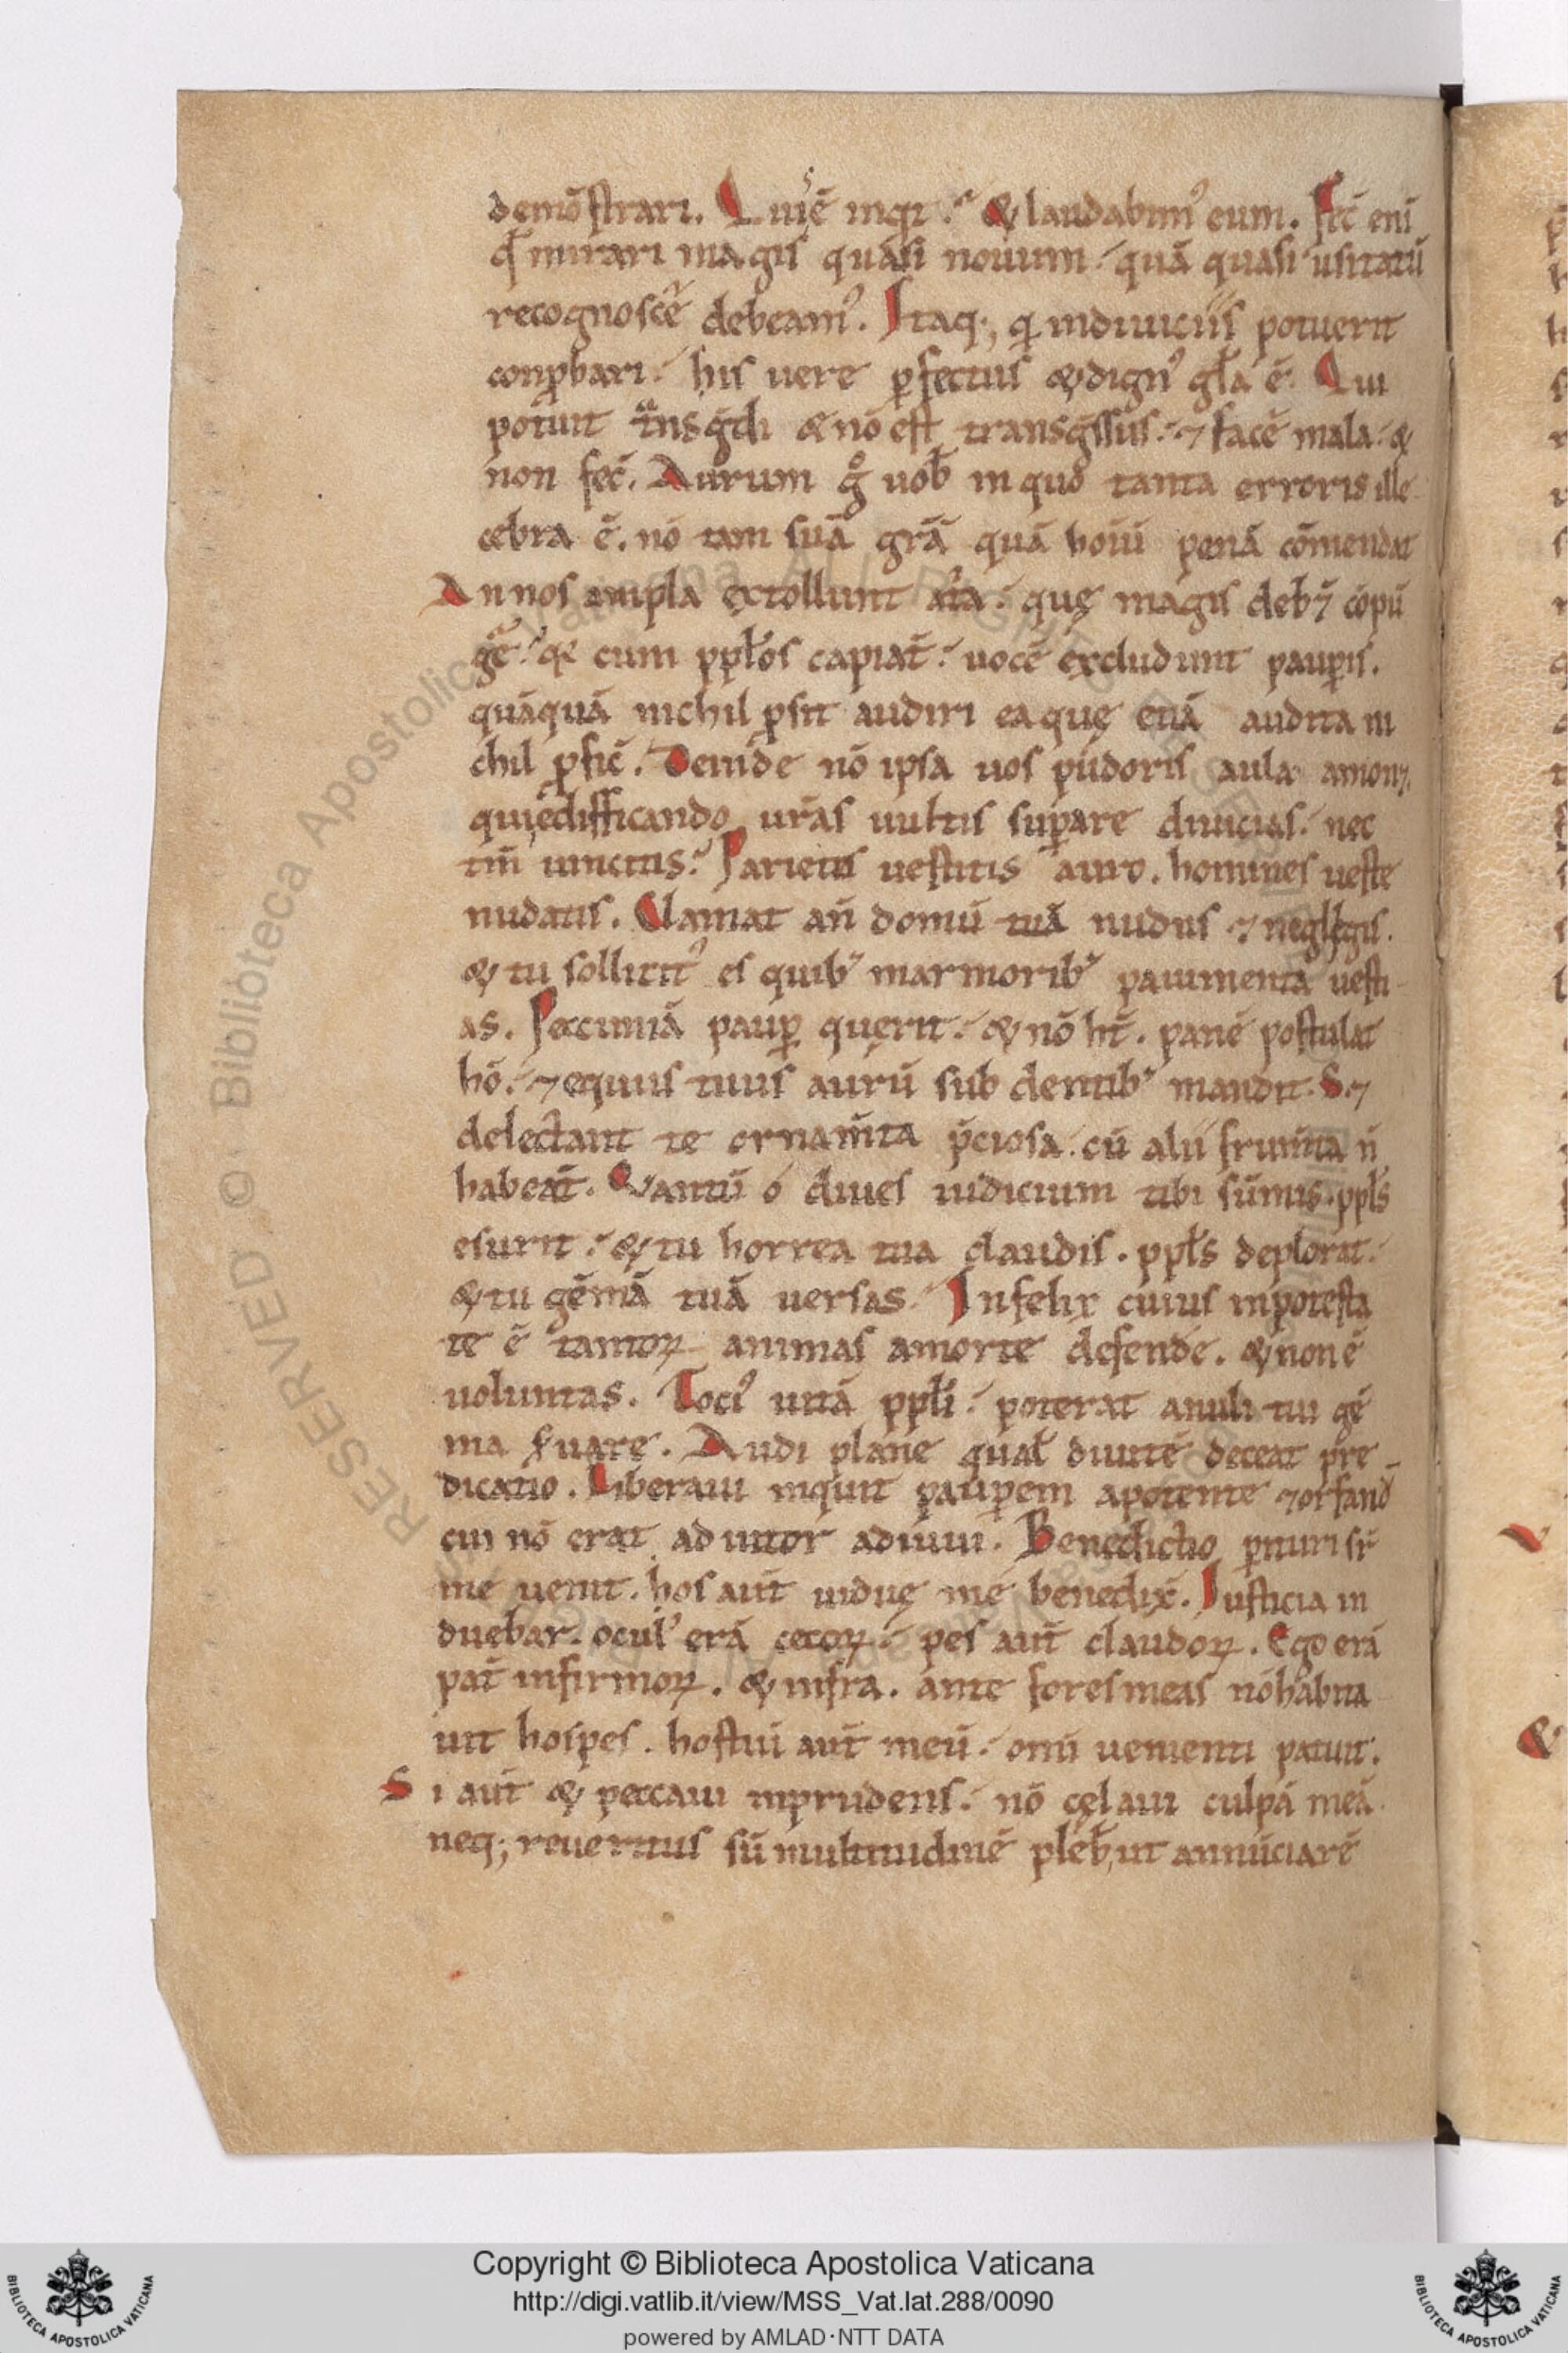 demō strari. Quis ē inqͥt. & laudabimꝰ eum. Fec̄ eni
qd̄ mirari magis quasi nouum. quā quasi usitatū
recognoscē debeamꝰ. Itaq; qͥ indiuiciis potuerit
conꝓbari. his uere ꝑfectus & dignꝰ gl̄a ē. Qui
potuit tͣnsg̃di & nō est transg̃ssus. ⁊ facē mala. &
non fec̄. Aurum gͦ uob̄ in quo tanta erroris ille
cebra ē. nō tam suā grā quā hoīū penā cōmendat
An nos ampla extollunt atͥa. quę magis deb⁊ cōpū
gē. qͥ cum ppl̄os capiat̄. uocē excludunt pauꝑis.
quāquā nichil ꝓsit audiri ea quę etiā audita ni
chil ꝓfic̄. Deinde nō ipsa uos pudoris aula amon⁊.
qui edifficando ur̄as uultis suꝑare diuicias. nec
tm̄ uincitis. Parietes uestitis auro. homines ueste
nudatis. Clamat an̄ domū tuā nudus ⁊ neglegis.
& tu sollicitꝰ es quibꝰ marmoribꝰ pauimenta uesti
as. Peccuniā pauꝑ quęrit. & nō ht̄. panē postulat
hō. ⁊ equus tuus aurū sub dentibꝰ mandit. S; ⁊
delectant te ornam̄ta p̄ciosa. cū alii frum̄ta n̄
habeāt. Quantū o diues iudicium tibi sūmis. ppl̄s
esurit. & tu horrea tua claudis. ppl̄s deplorat.
& tu gēmā tuā uersas. Infelix cuius inpotesta
te ē tantoꝝ animas amorte defendē. & non ē
uoluntas. Tociꝰ uitā ppl̄i. poterat anuli tui gē
ma ẜuare. Audi plane qual̄ diuitē deceat pͥre
dicatio. Liberaui inquit pauꝑem apotente ⁊ orfanū
cui nō erat adiutor adiuui. Benedictio ꝑituri sͬ
me uenit. hos aut̄ uiduę me benedix̄. Iusticia in
duebar. ocul' erā cecoꝝ. pes aut̄ claudoꝝ. Ego erā
pat̄ infirmoꝝ. & infra. ante fores meas nō habita
uit hospes. hostiū aut̄ meū. omī uenienti patuit.
Si aut̄ & peccaui inprudens. nō cęlaui culpā meā.
neq; reueritus sū multitudinē pleb̄, ut annūciarē
Copyright © Biblioteca Apostolica Vaticana
http://digi.vatlib.it/view/MSS_Vat.lat.288/0090
powered by AMLAD·NTT DATA